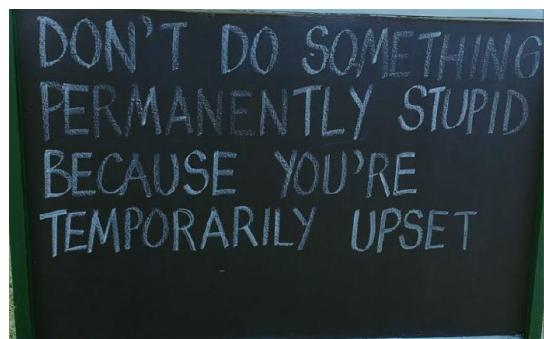 DON'T DO SOMETHING
PERMANENTLY STUPID
BECAUSE YOU'RE
TEMPORARILY UPSET